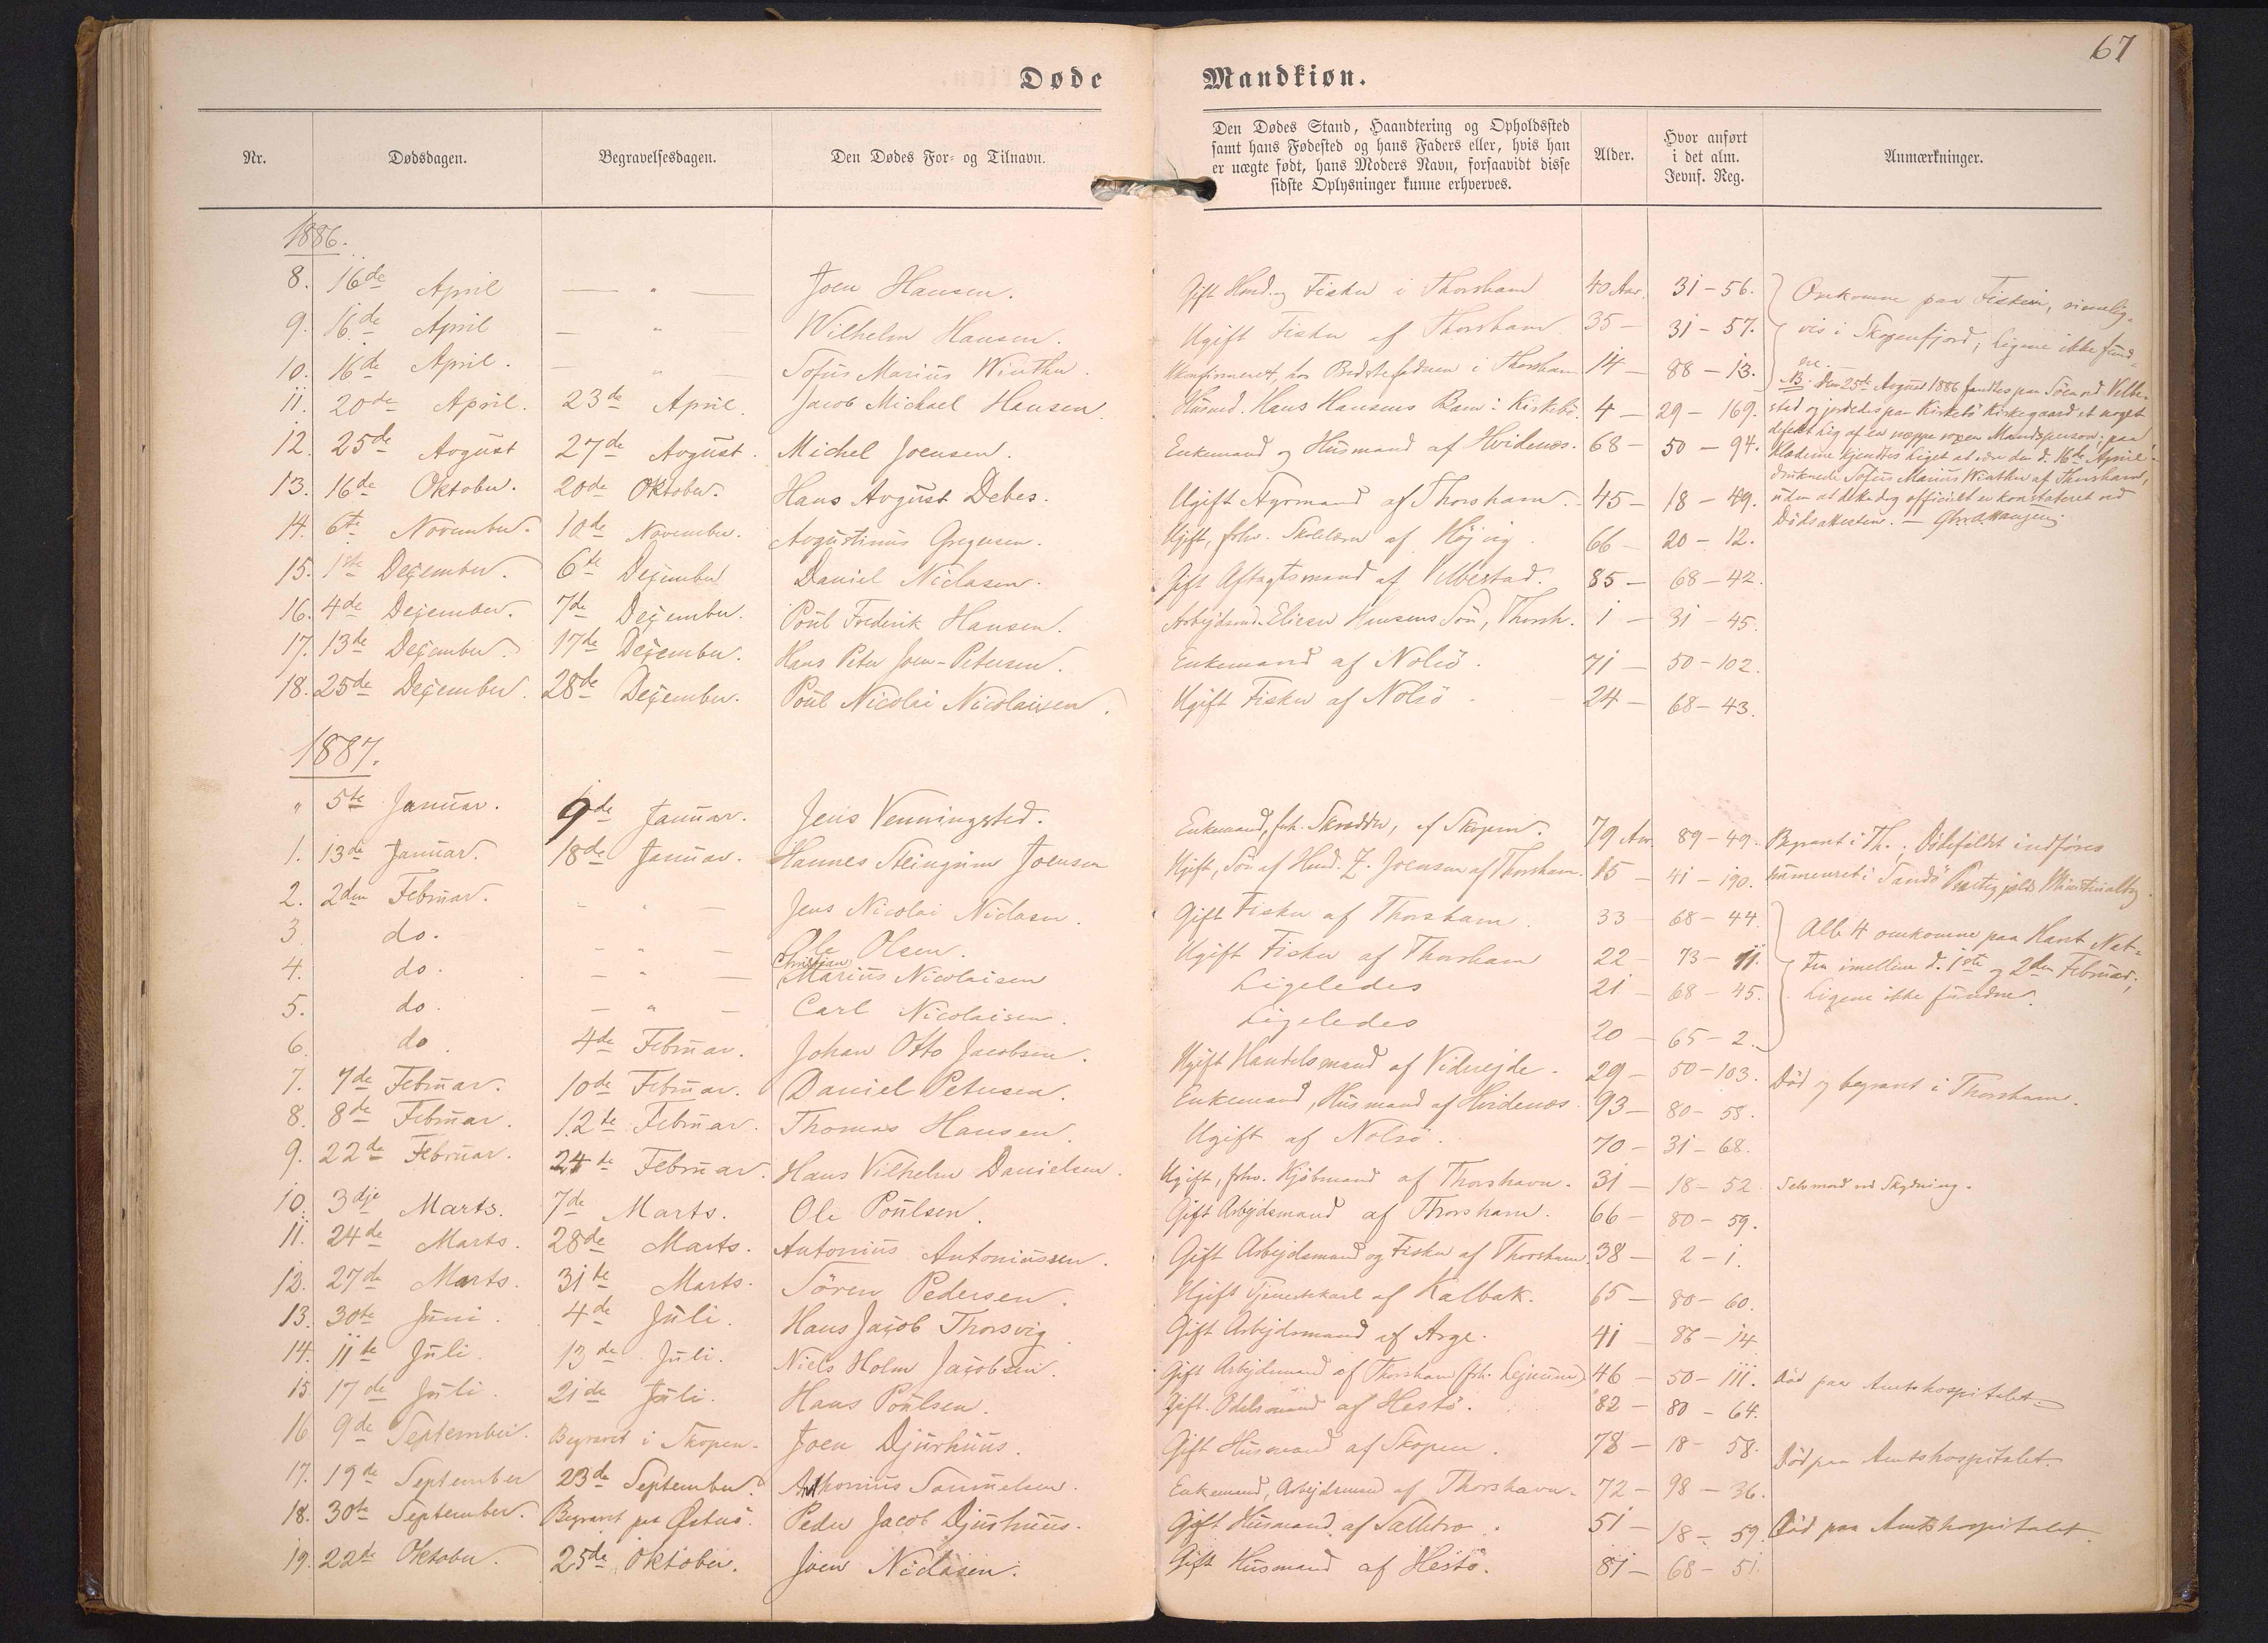 67
Døde Mandkiøn.
Nr. Dødsdagen. Begravelsesdagen. Den Dødes For- og Tilnavn. Den Dødes Stand, Haandtering og Opholdssted samt hans Fødested og hans Faders eller, hvis han er uægte født, hans Moders Navn, forsaavidt disse sidste Oplysninger kunne erhverves. Alder. Hvor anført i det alm. Jevnf. Reg. Anmærkninger.
1886.
8. 16de April — " — Joen Hansen. Gift Hmd. og Fisker i Thorshavn 40 Aar. 31 - 56. Omkomne paa Fiskeri, rimelig-
9. 16de April — " — Wilhelm Hansen. Ugift Fisker af Thorshavn 35 — 31 - 57. vis i Skopenfjord; Ligene ikke fund-
10. 16de April. — " — Sofus Marius Winther. Ukonfirmeret, hos Bedstefaderen i Thorshavn 14 — 88 - 13. ne.
11. 20de April. 23de April. Jacob Michael Hansen. Husmd. Hans Hansens Barn i Kirkebø. 4 — 29 - 169.
NB. Den 25de August 1886 fandtes paa Søen ved Velbe-
stad og jordedes paa Kirkebø Kirkegaard et noget
defekt Lig af en neppe voxen Mandsperson; paa
Klæderne kjendtes Liget at være den d. 16de April
druknede Sofus Marius Winther af Thorshavn,
uden at dette dog officielt er konstateret ved
Dødsattesten. —
12. 25de August 27de August. Michel Joensen. Enkemand og Husmand af Hvidenæs. 68 — 50 - 94.
13. 16de Oktober. 20de Oktober. Hans August Debes. Ugift Styrmand af Thorshavn. 45 — 18 - 49.
14. 6te November. 10de November. Augustinus Gregersen. Ugift, forhv. Skolelærer af Højvig. 66 — 20 - 12.
15. 1ste December. 6te December Daniel Niclasen. Gift Aftægtsmand af Velbestad. 85 — 68 - 42.
16. 4de December. 7de December. Poul Frederik Hansen. Arbejdsmd. Elieser Hansens Søn, Thorsh. 1 — 31 - 45.
17. 13de December. 17de December. Hans Peter Joen-Petersen. Enkemand af Nolsø. 71 — 50 - 102.
18. 25de December. 28de December. Poul Nicolai Nicolaisen. Ugift Fisker af Nolsø 24 — 68 - 43.
1887.
" 5te Januar. 9de Januar. Jens Venningsted. Enkemand, forh. Skrædder, af Skopen. 79 Aar. 89 - 49. Begravet i Th.; Dødsfaldet indføres
1. 13de Januar. 18de Januar. Hannes Steingrim Joensen Ugift, Søn af Hmd. Z. Joensen af Thorshavn. 15 — 41 - 190. numeret i Sandø Præstegjelds Ministerialbog.
2. 2den Februar. - " - Jens Nicolai Niclasen. Gift Fisker af Thorshavn. 33 — 68 - 44. Alle 4 omkomne paa Havet Nat-
3. do. - " - Ole Olsen. Ugift Fisker af Thorshavn 22 — 73 - 11. ten imellem d. 1ste og 2den Februar;
4. do. - " - Christian Marius Nicolaisen Ligeledes 21 — 68 - 45. Ligene ikke fundne.
5. do. - " - Carl Nicolaisen. Ligeledes 20 — 65 - 2.
6. do. 4de Februar. Johan Otto Jacobsen. Ugift Handelsmand af Viderejde. 29 — 50 - 103. Død og begravet i Thorshavn.
7. 7de Februar. 10de Februar. Daniel Petersen. Enkemand, Husmand af Hvidenæs. 93 — 80 - 58.
8. 8de Februar. 12te Februar. Thomas Hansen. Ugift af Nolsø. 70 — 31 - 68.
9. 22de Februar. 24de Februar. Hans Vilhelm Danielsen. Ugift, forhv. Kjøbmand af Thorshavn. 31 — 18 - 52. Selvmord ved Skydning.
10. 3dje Marts. 7de Marts. Ole Poulsen. Gift Arbejdsmand af Thorshavn. 66 — 80 - 59.
11. 24de Marts. 28de Marts. Antonius Antoniussen. Gift Arbejdsmand og Fisker af Thorshavn. 38 — 2 - 1.
12. 27de Marts. 31te Marts. Sören Pedersen. Ugift Tjenestekarl af Kalbak. 65 — 80 - 60.
13. 30te Juni. 4de Juli. Hans Jacob Thorsvig Gift Arbejdsmand af Arge. 41 — 86 - 14
14. 11te Juli. 13de Juli. Niels Holm Jacobsen. Gift Arbejdsmand af Thorshavn 46 — 50 - 111. Død paa Amtshospitalet.
15. 17de Juli. 21de Juli. Hans Poulsen. Gift. Odelsmand af Hestø. 82 — 80 - 64.
16. 9de September. Begravet i Skopen. Joen Djurhuus. Gift Husmand af Skopen. 78 — 18 - 58. Død paa Amtshospitalet.
17. 19de September 23de September. Anthonius Samuelsen. Enkemand, Arbejdsmand af Thorshavn. 72 — 98 - 36.
18. 30te September. Begravet paa Østerø. Peder Jacob Djurhuus. Gift Husmand af 51 — 18 - 59. Død paa Amtshospitalet.
19. 22de Oktober. 25de Oktober. Joen Niclasen. Gift Husmand af Hestø. 81 — 68 - 51.